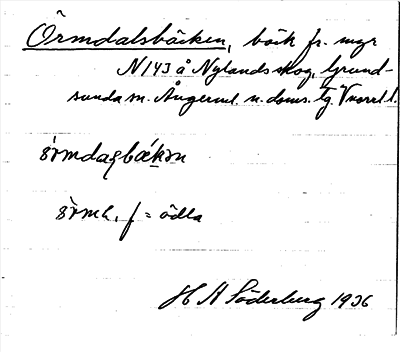 Örmdalsbäcken, bäck fr. myr
N 143 å Nylands skog, Grund-
sunda sn. Ångerml. n. doms. Tg. Vnorrl. l.
örmdagbäkɔn
örmḷ, f = ödla
H A Söderberg 1936